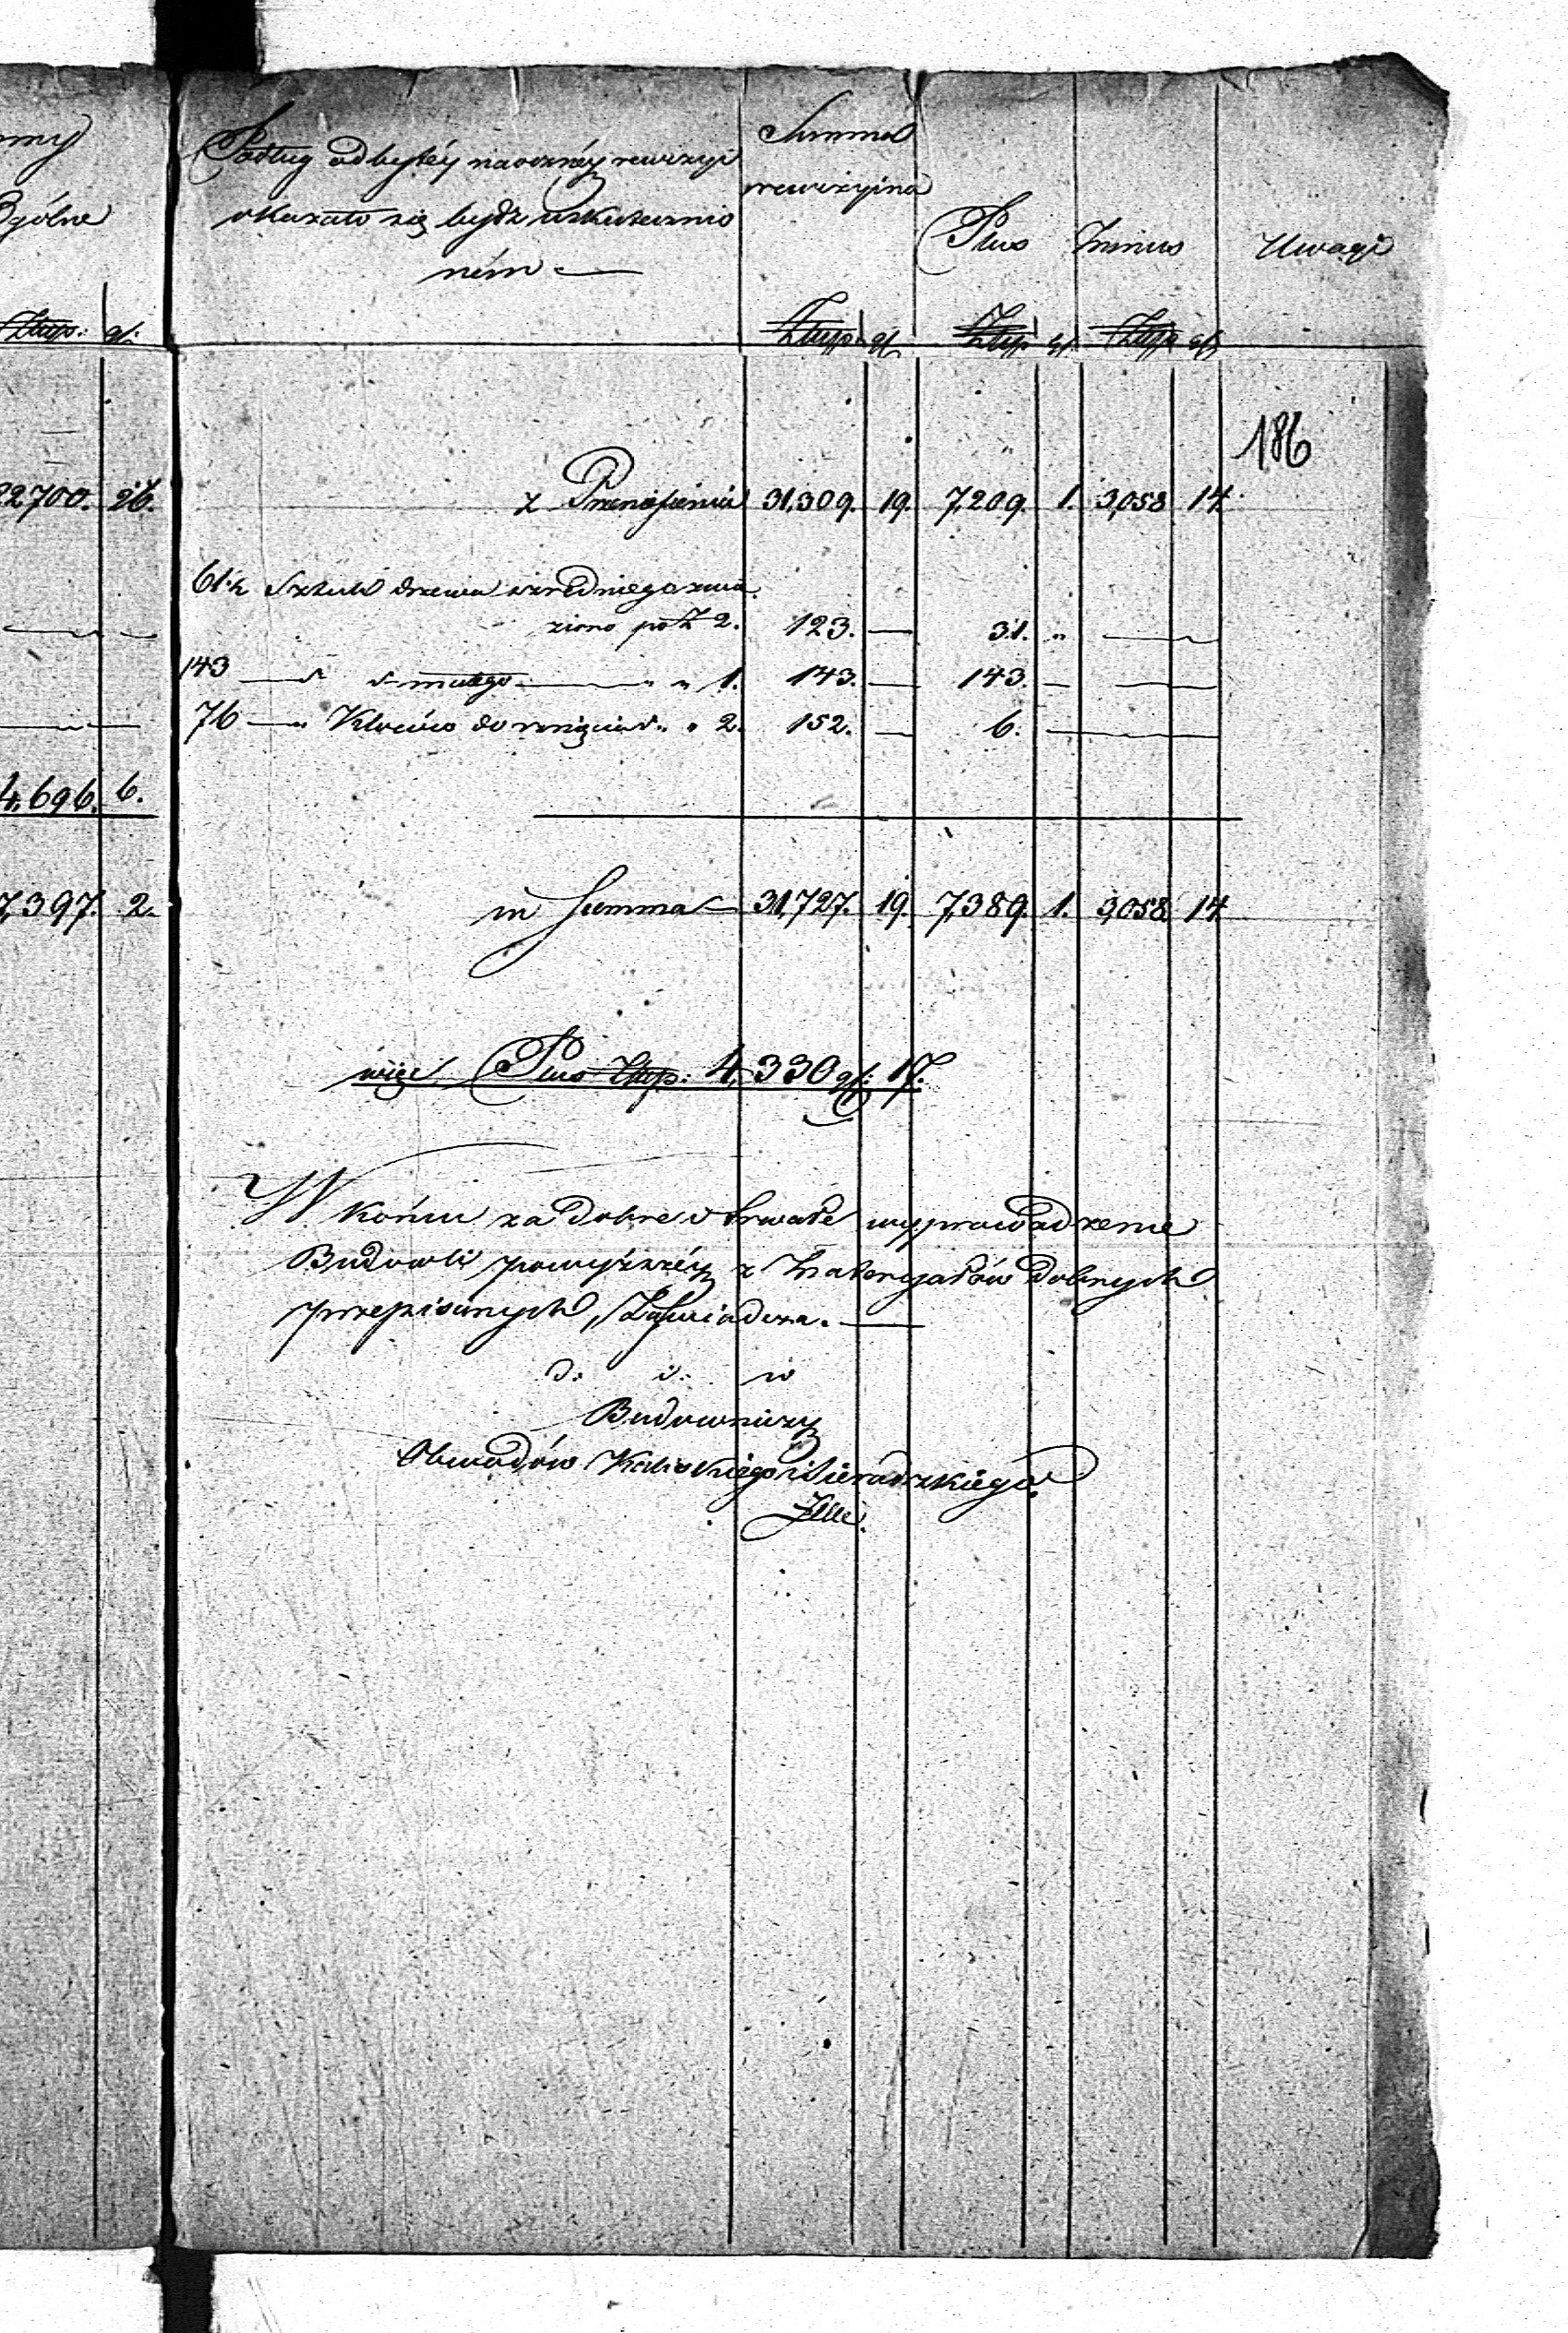 mmy
Ogólne
Złtup: gr:
22700. 26.
4,696. 6.
7,397. 2.
Podług odbytéy naocznéy rewizyi
okazało się bydź uskutecznio
ném —
Summa
rewizyina
Plus
Minus
Uwagi
Złtup. gr.
Złtup gr
Złtup gr
186
z Przeniesienia 31,309. 19. 7,209. 1. 3,058 14.
61½ Sztuk drzewa śzredniego zwie
ziono po Zł 2. 123. — 31. „ —
143 — „ „ małego — „ „ 1. 143. — 143. — —
76 — „ Kloców do rznięcia „ „ 2. 152. — 6. — —
in Summa — 31,727. 19. 7,389. 1. 3,058 14
więc Plus Złtup: 4,330 gr: 17.
W końcu za dobre i trwałe wyprowadzenie
Budowli powyższéy z Materyałów dobrych
przepisanych, Zaświadcza. —
d: i: w
Budowniczy
Obwodów Kaliskiego i Sieradzkiego